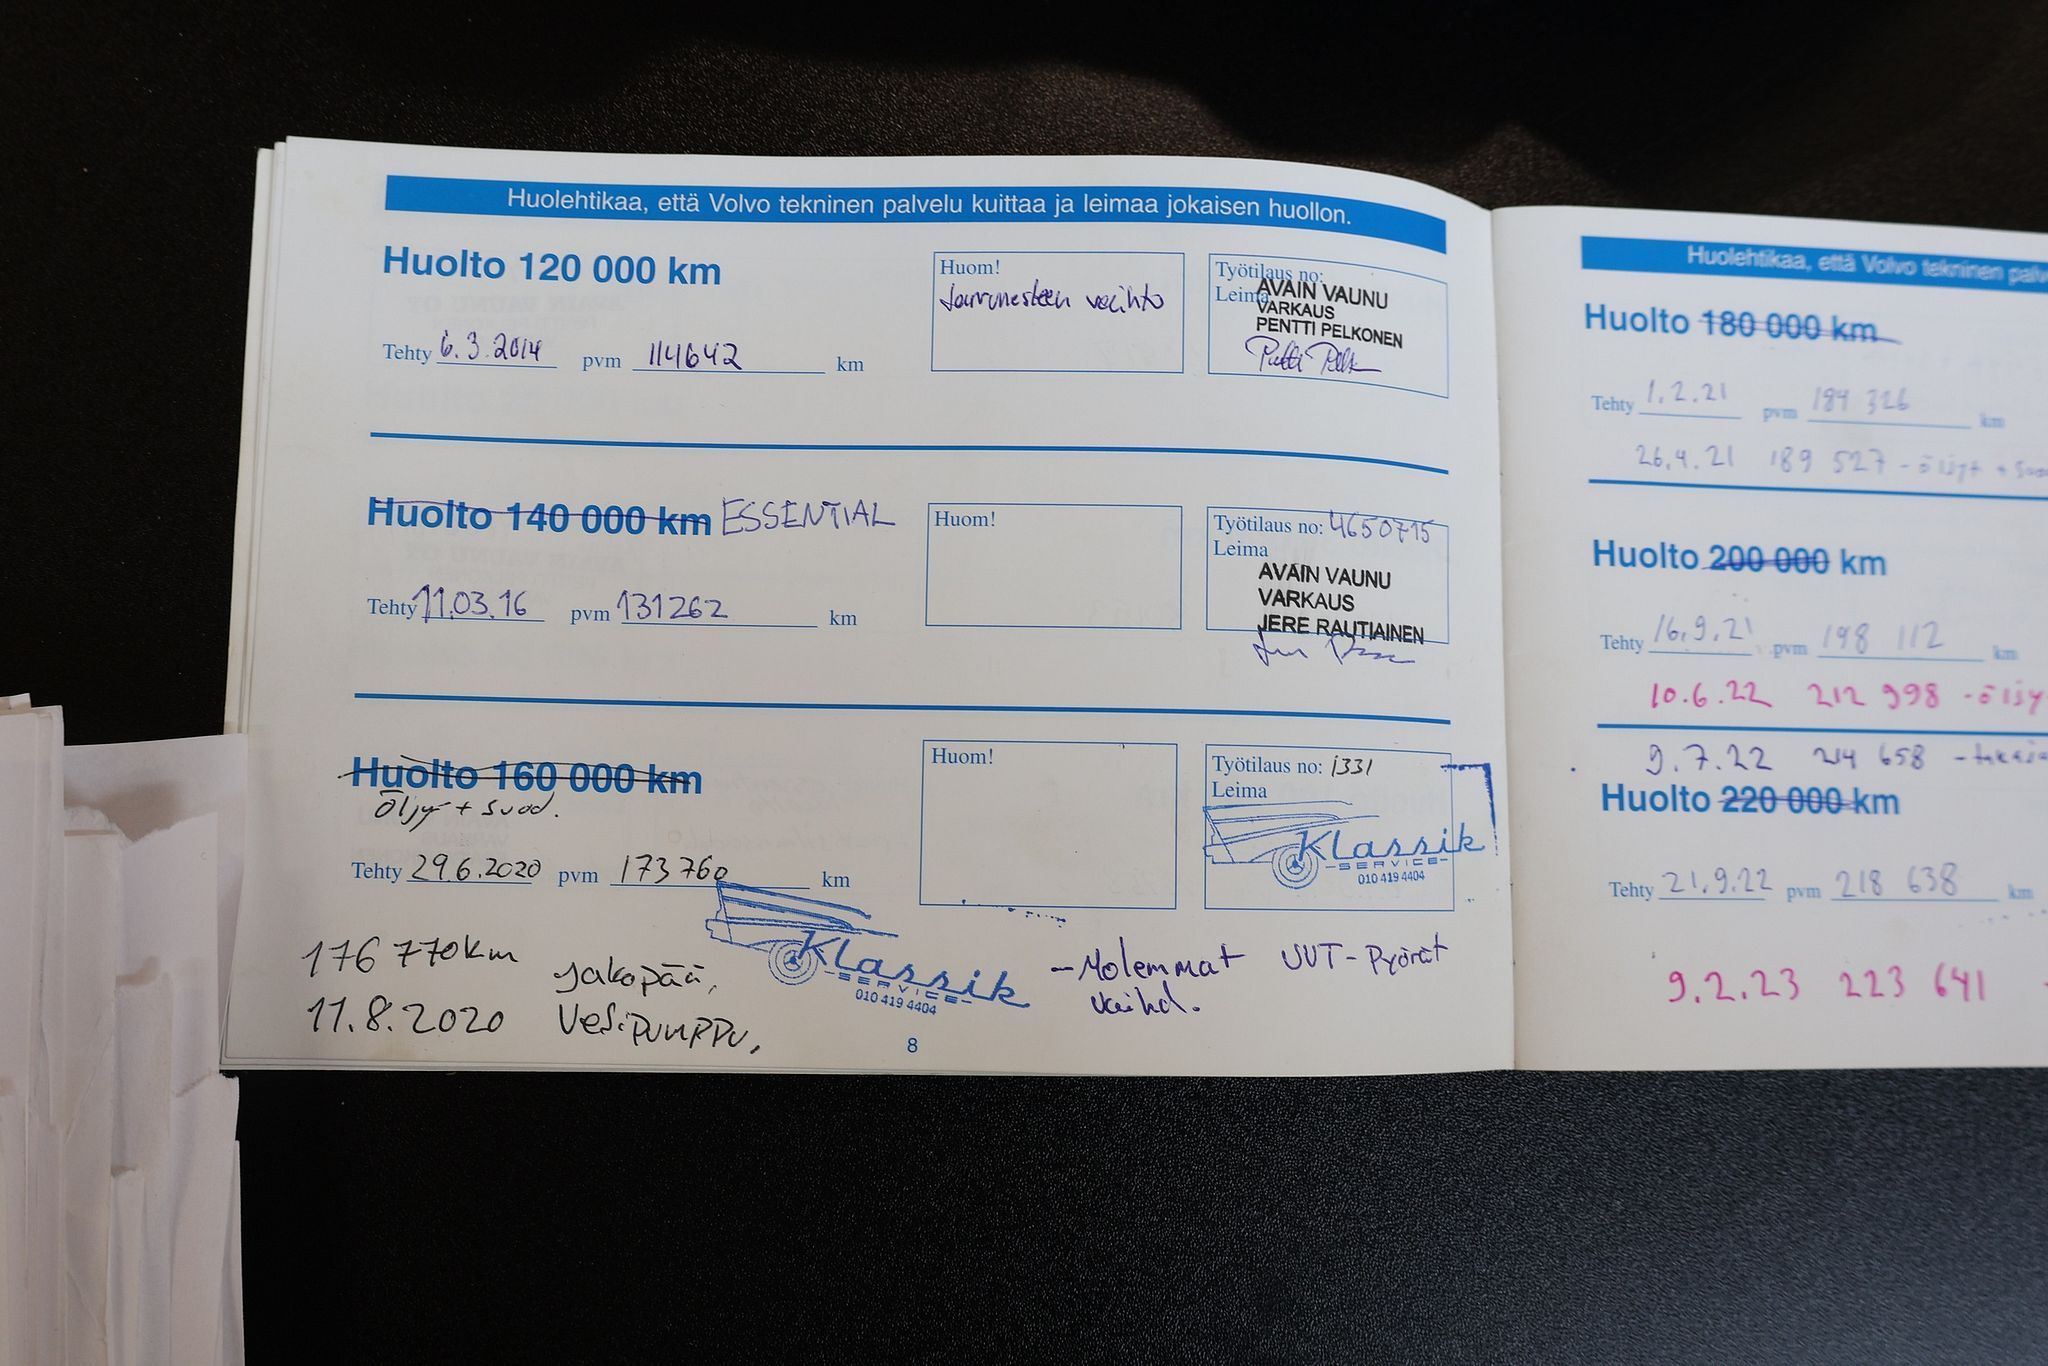 Huolehtikaa, että Volvo tekninen palvelu kuittaa ja leimaa jokaisen huollon.
Huolto 120 000 km
Huom!
Jarrunesteen vaihto
Työtilaus no:
Leima
AVAIN VAUNU
VARKAUS
PENTTI PELKONEN
Tehty 6.3.2014 pvm 114642 km
Huolto 140 000 km ESSENTIAL
Huom!
Työtilaus no: 4650715
Leima
AVAIN VAUNU
VARKAUS
JERE RAUTIAINEN
Tehty 11.03.16 pvm 131262 km
Huolto 160 000 km
öljy + suod.
Huom!
Työtilaus no: 1331
Leima
Klassik
-SERVICE-
010 419 4404
Tehty 29.6.2020 pvm 173 760 km
176 770km Jakopää,
11.8.2020 Vesipumppu,
Klassik
-SERVICE-
010 419 4404
- Molemmat UUT-Pyörät
vaihd.
8
Huolehtikaa, että Volvo tekninen
Huolto 180 000 km
Tehty 1.2.21 pvm 184 326 km
26.4.21 189 527 - öljyt +
Huolto 200 000 km
Tehty 16.9.21 pvm 198 112 km
10.6.22 212 998 - öljy
9.7.22 214 658
Huolto 220 000 km
Tehty 21.9.22 pvm 218 638 km
9.2.23 223 641